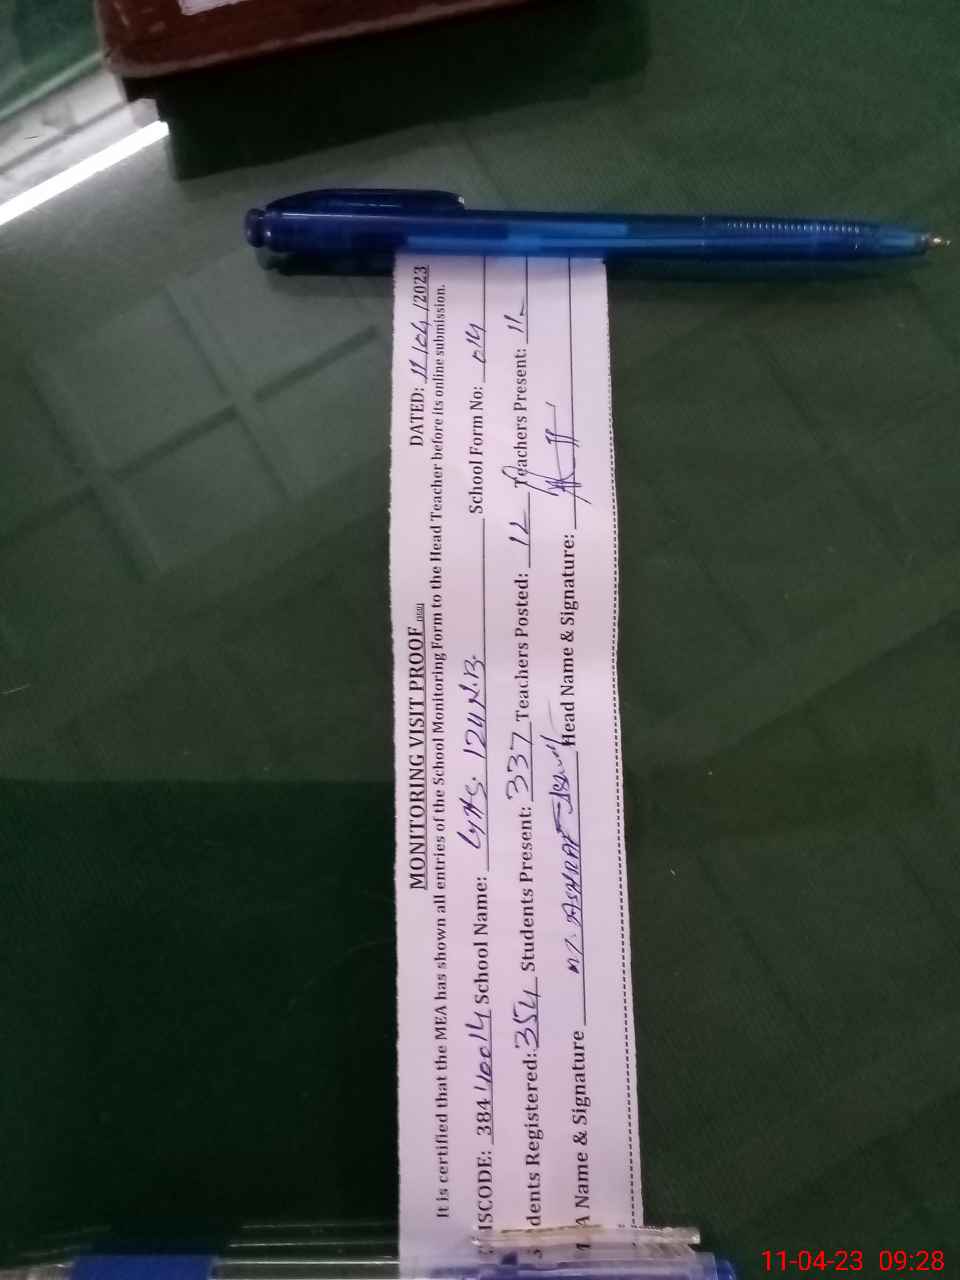 MONITORING VISIT PROOF DATED: 11/04/2023
It is certified that the MEA has shown all entries of the School Monitoring Form to the Head Teacher before its online submission.
ISCODE: 38440014 School Name: GHS. 124 N.B. School Form No: 014
dents Registered: 354 Students Present: 337 Teachers Posted: 12 Teachers Present: 11
A Name & Signature M. ASHRAF Head Name & Signature:
11-04-23 09:28